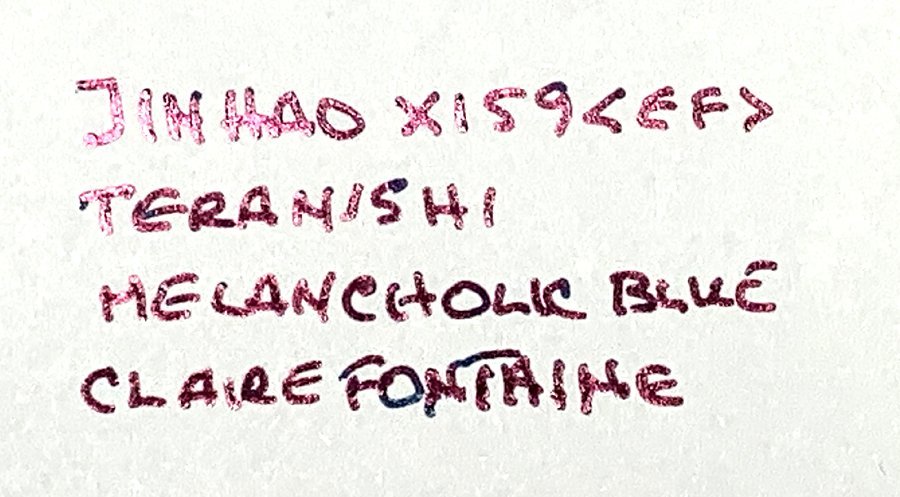 JINHAO X159<EF>
TERANISHI
MELANCHOLIC BLUE
CLAIREFONTAINE